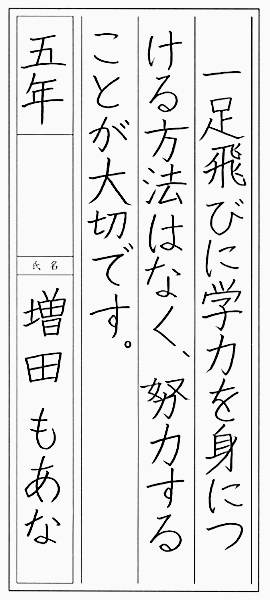 一足飛びに学力を身につ
ける方法はなく、努力する
ことが大切です。
五年
氏名
増田もあな